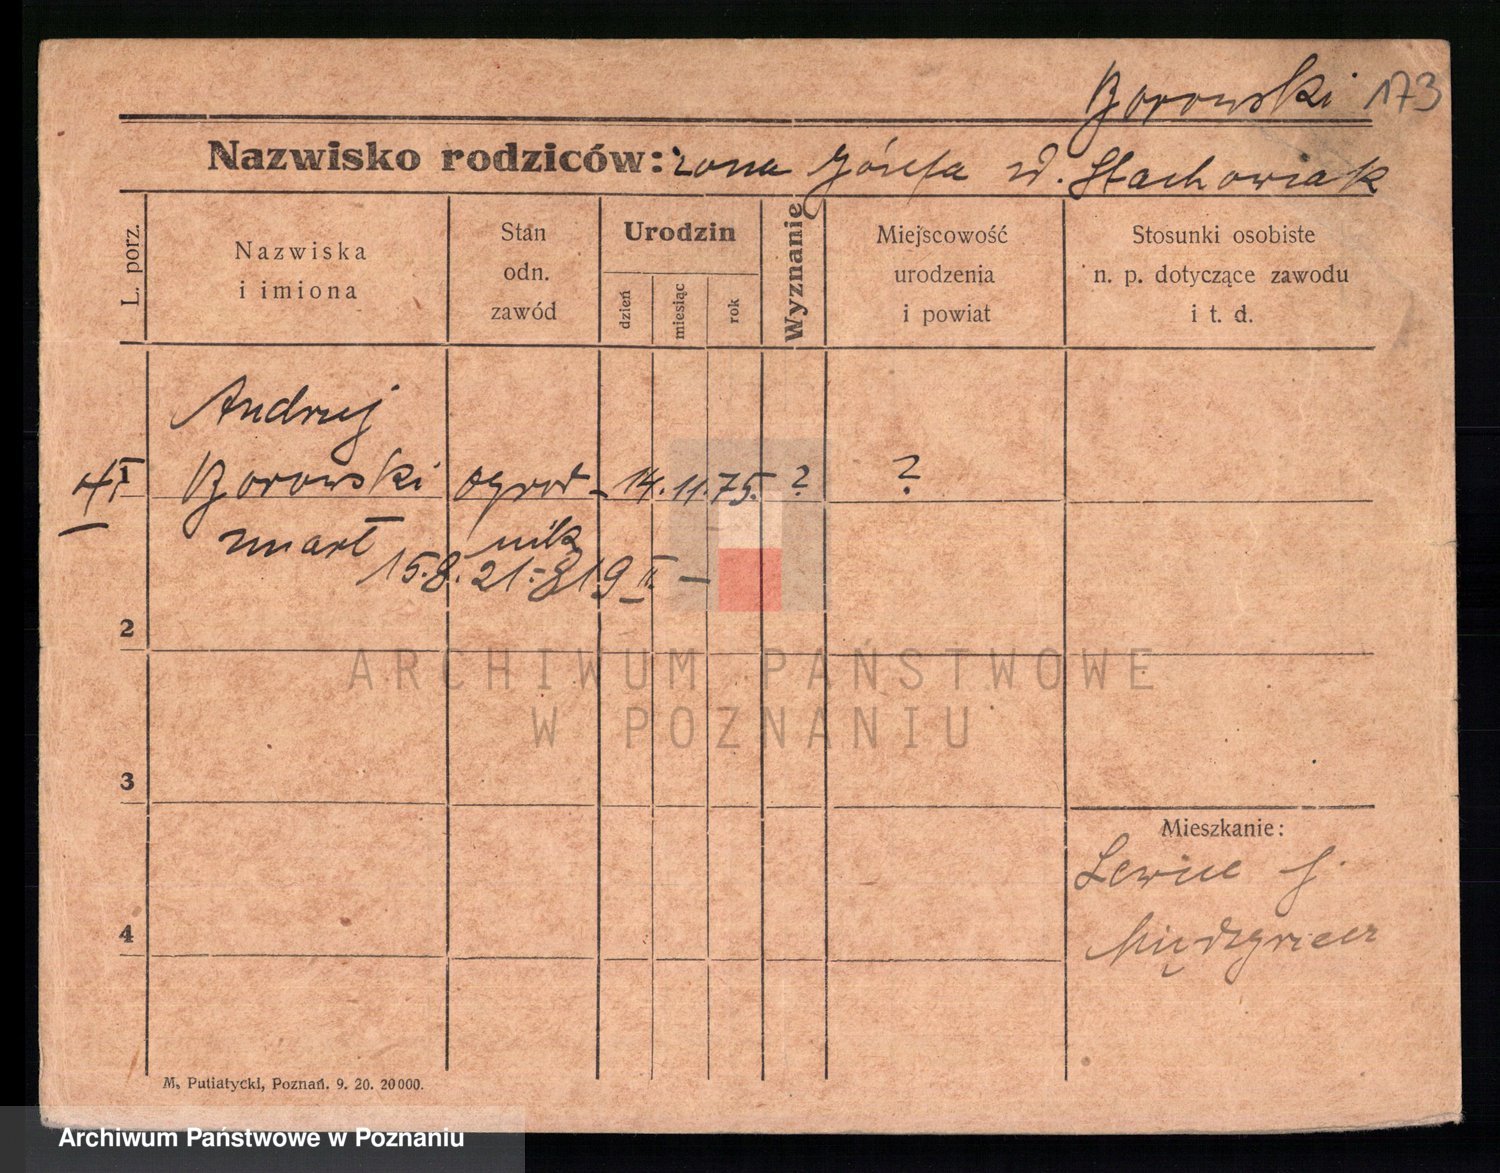 Borowski 173
Nazwisko rodziców: żona Józefa zd. Stachowiak
L. porz.
Nazwiska
i imiona
Stan
odn.
zawód
Urodzin
dzień
miesiąc
rok
Wyznanie
Miejscowość
urodzenia
i powiat
Stosunki osobiste
n. p. dotyczące zawodu
i t. d.
Andrzej
1 Borowski ogrod- 14. 11. 75. ? ?
zmarł nik
15.8.21.- 919 II. -
2
3
4
Mieszkanie:
Lewice
Międzyrzecz
M. Putiatycki, Poznań. 9. 20. 20000.
ARCHIWUM PAŃSTWOWE
W POZNANIU
Archiwum Państwowe w Poznaniu